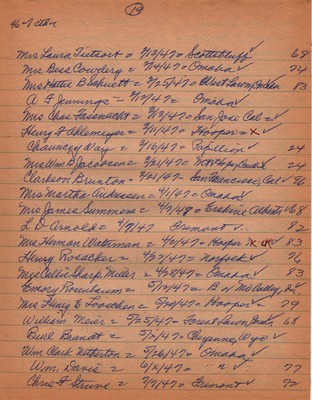 13
Mrs Laura Tietsort = 2/13/47 = Scottsbluff ✓ 68
Mrs Bess Cowdery = 2/14/47 = Omaha ✓ 74
Mrs Hattie B 2/25/47 = West Lawn, Omaha 83
A F Jennings = 2/12/47 = Omaha ✓
Mrs Chas 3/13/47 = San Jose Cal = ✓
Henry F Ahlemeyer = 3/11/47 = Hooper = x ✓
Chauncey Way = 3/16/47 = Papillion ✓ 24
Mrs Wm B Jacobsen = 3/21/47 = Mt Hope, Omaha ✓ 24
Clarkson Brunton = 3/21/47 = San Francisco, Cal ✓ 86
Mrs Martha Andreasen = 4/1/47 = Omaha ✓
Mrs James Summers = 4/7/48 = Erskine Alberta ✓ 68
L D Arnold = 4/7/47 Fremont ✓ 82
Mrs Herman Waterman = 4/6/47 = Hooper x ok ✓ 83
Henry Rosacker = 4/27/47 = Norfolk ✓ 76
Mrs Callie Sharp Miller = 4/28/47 = Omaha ✓ 83
Emory Rosenbaum = 5/14/47 = B n McCulley, ✓
Mrs Henry E Looschen = 5/20/47 = Hooper ✓ 79
William Meier = 5/25/47 = Forest Lawn, Omaha 68
Burl Brandt = 5/2/47 = Cheyenne, Wyo ✓
Wm Clark Netherton = 5/26/47 = Omaha ✓
Wm. Davis = 6/X/47 = " ✓ 77
Chris F Struve = 7/9/47 = Fremont ✓ 92